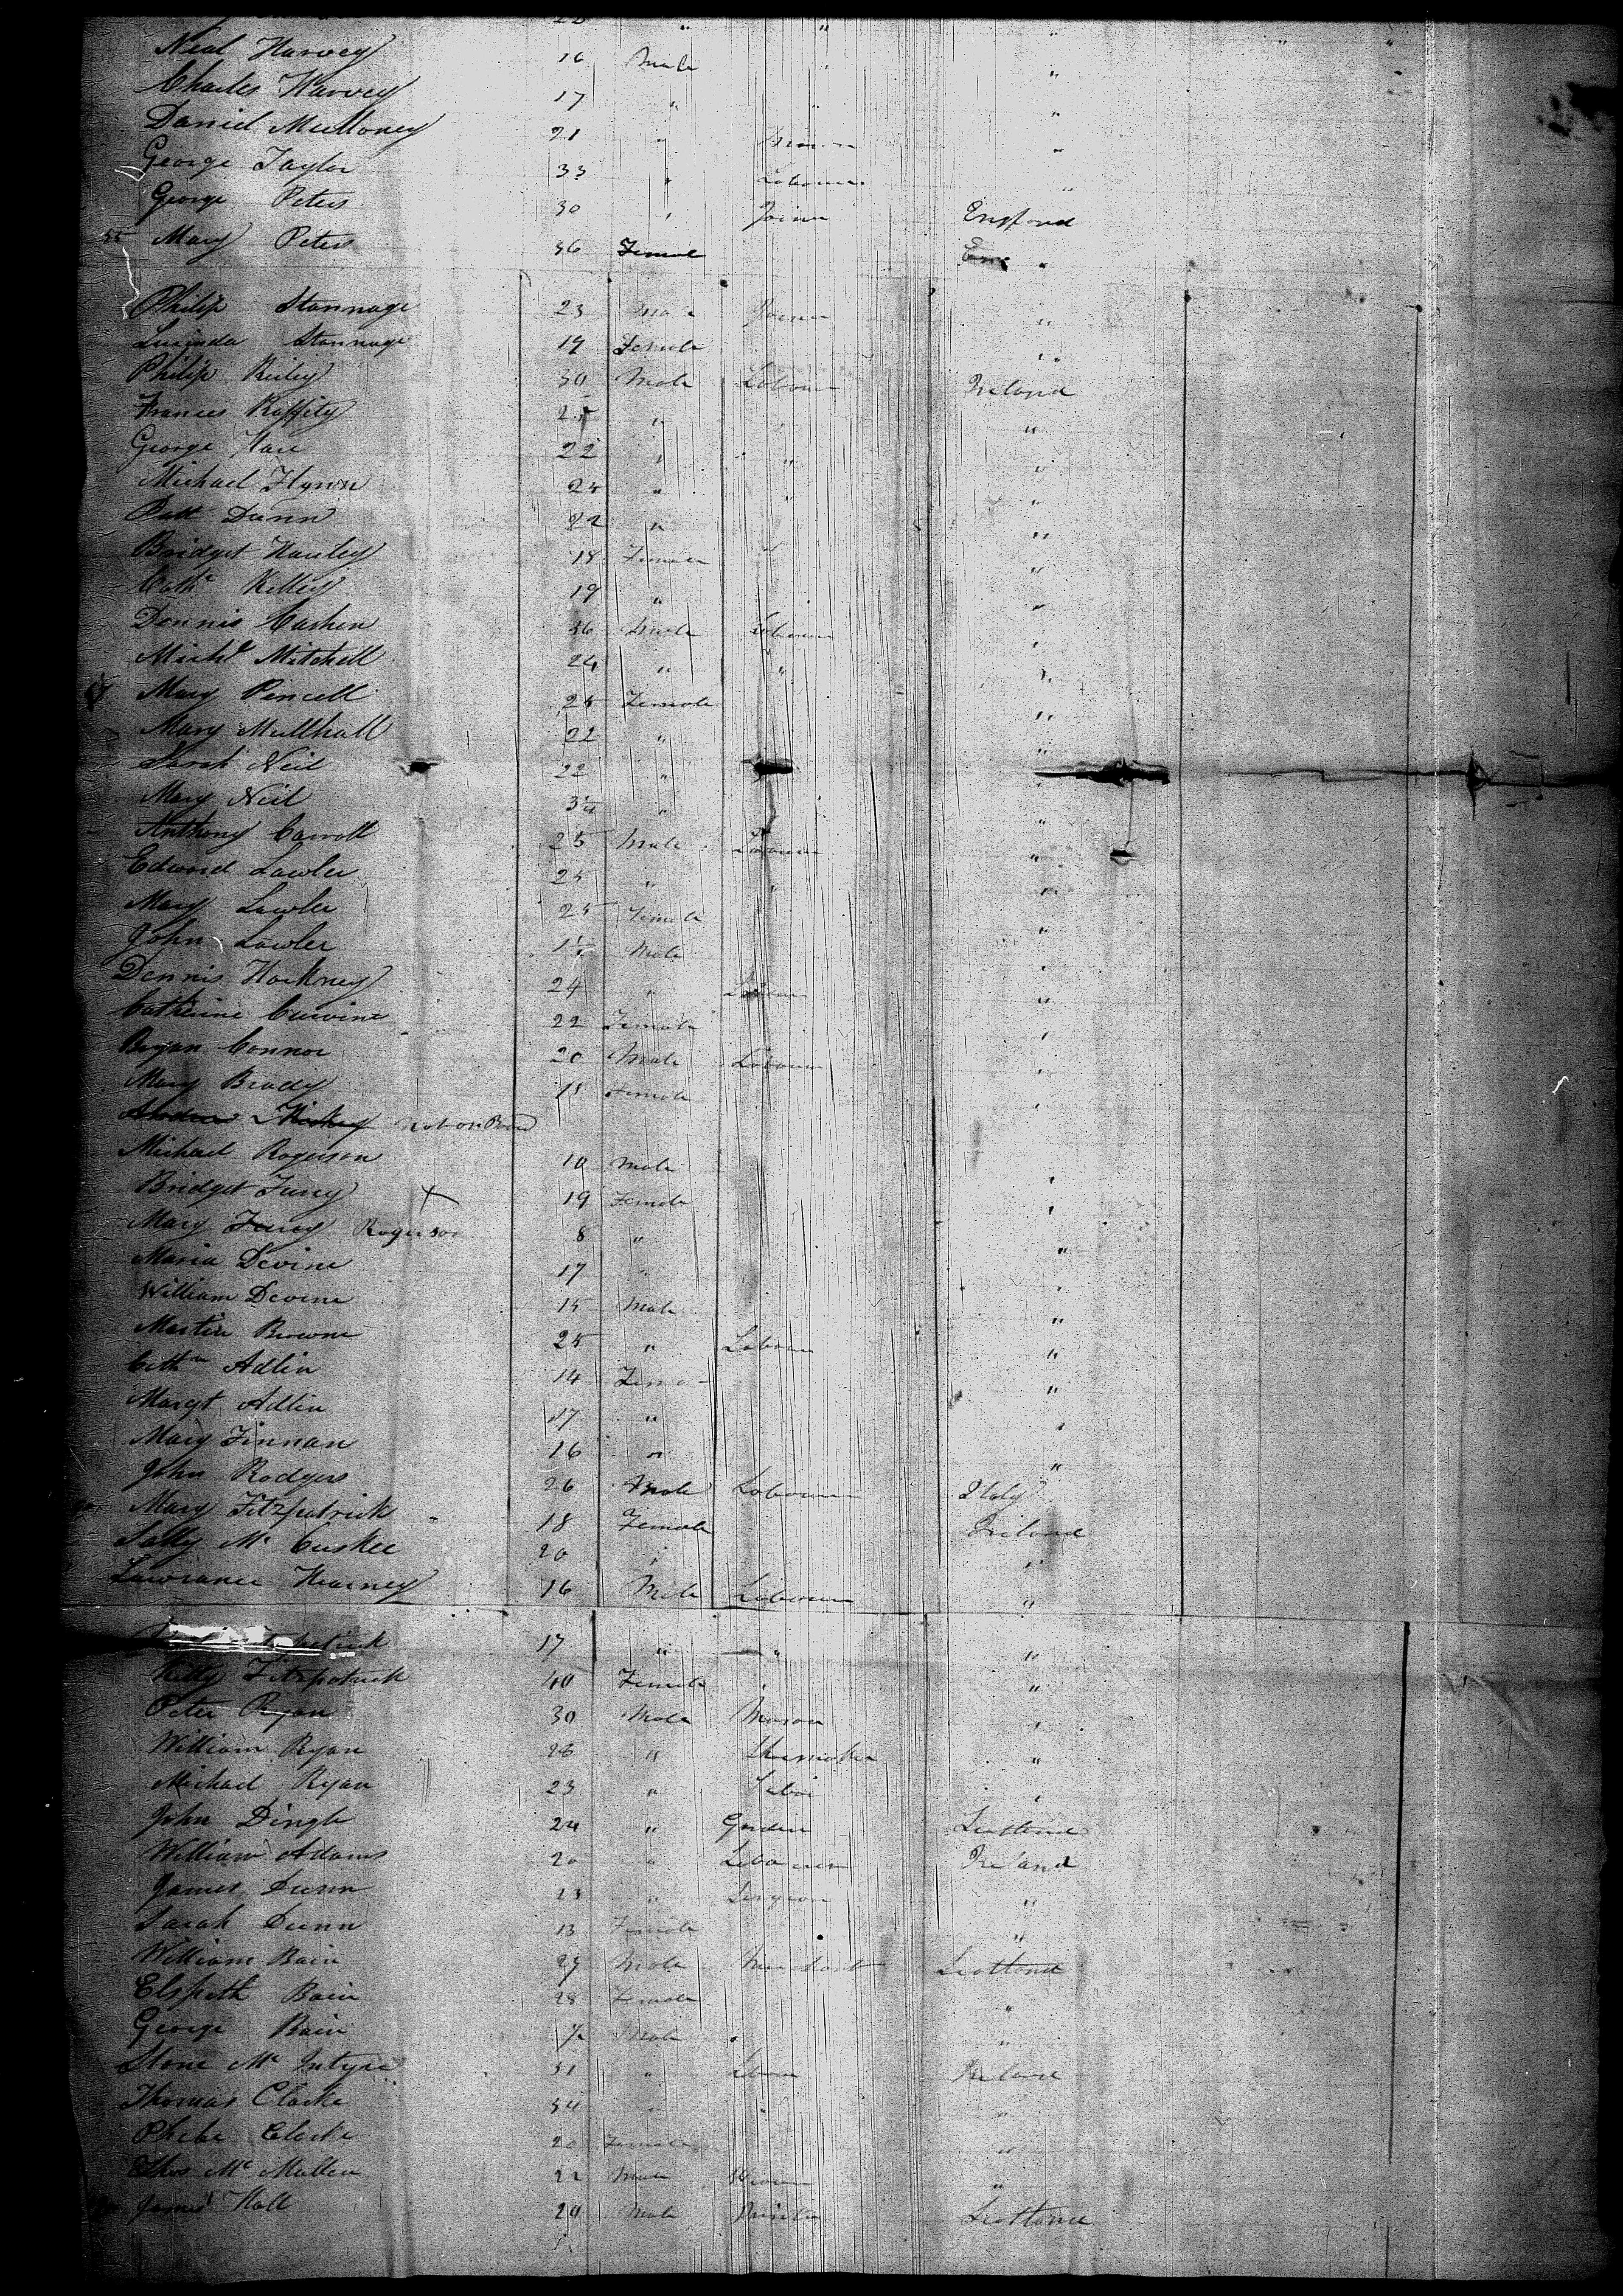 22 " " "
Neal Harvey 16 Male "
Charles Harvey 17 " "
Daniel Mulloney 21 " "
George Taylor 33 " Labourer "
George Peters 30 " Joiner England
55 Mary Peters 36 Female "
Philip Stannage 23 Male Joiner "
Lucinda Stannage 19 Female "
Philip Reiley 30 Male Labourer Ireland
Frances Raffity 25 " "
George Hare 22 " " "
Michael Flynn 25 " " "
Patt Dunn 22 " "
Bridget Hanley 18 Female "
Cath Kelley 19 " "
Dennis Cashen 36 Male Labourer "
Michl Mitchell 24 " " "
Mary Pencell 25 Female "
Mary Mullhall 22 " "
Sarah Neil 22 " "
Mary Neil " "
Anthony Carroll 25 Male Labourer "
Edward Lawler 25 " " "
Mary Lawler 25 Female "
John Lawler Male "
Dennis Hockney 24 " Labourer "
Catherine 22 Female "
Bryan Connor 20 Male Labourer "
Mary Brady Female "
Hickey not on Board
Michael Rogerson 10 Male
Bridget Furey X 19 Female "
Mary Furey Rogerson 8 " "
Maria Devine 17 " "
William Devine 15 Male "
Martin Browne 25 " Labourer "
Cathn Adlin 14 Female "
Margt Adlin 17 " "
Mary Finnan 16 " "
John Rodgers 26 Male Labourer Italy
Mary Fitzpatrick 18 Female Ireland
Sally Mc Cuskee 20 " "
Lawrance Kearney 16 Male Labourer "
17 " " "
Kitty Fitzpatrick 40 Female "
Peter Ryan 30 Male Mason "
William Ryan 26 " Shoemaker "
Michael Ryan 23 " "
John Dingle 24 " Scotland
William Adams 20 " Labourer Ireland
James Dunn 23 " "
Sarah Dunn 13 Female "
William Bain 29 Male Merchant Scotland
Elspeth Bain 28 Female "
George Bain Male "
Mc Intyre 31 " Ireland
Thomas Clarke 34 " "
Phebe Clarke 20 Female "
Thos Mc Mullen 22 Male "
James Hall 20 Male Scotland